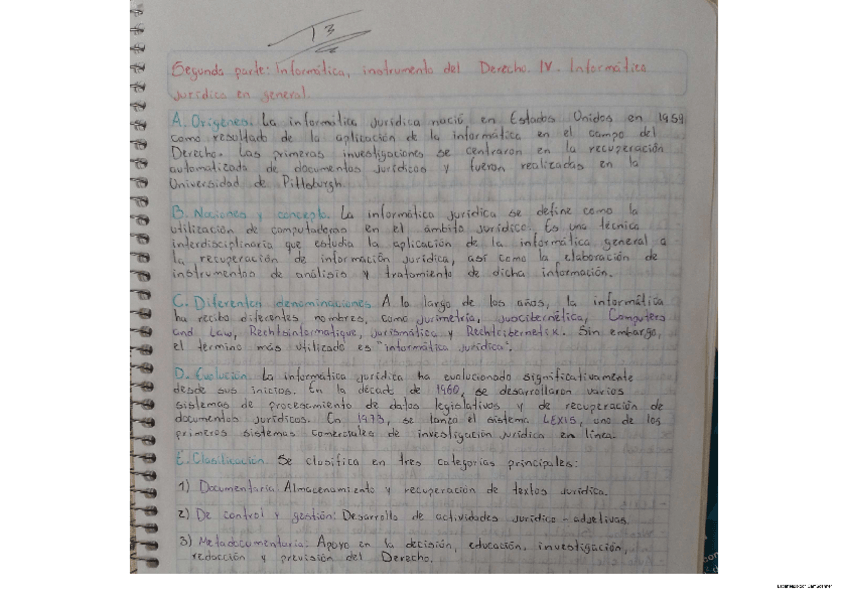 T3
Segunda parte: Informática, instrumento del Derecho. IV. Informática
jurídica en general.
A. Orígenes. La informática jurídica nació en Estados Unidos en 1959
como resultado de la aplicación de la informática en el campo del
Derecho. Las primeras investigaciones se centraron en la recuperación
automatizada de documentos jurídicos y fueron realizadas en la
Universidad de Pittsburgh.
B. Nociones y concepto. La informática jurídica se define como la
utilización de computadoras en el ámbito jurídico. Es una técnica
interdisciplinaria que estudia la aplicación de la informática general a
la recuperación de información jurídica, así como la elaboración de
instrumentos de análisis y tratamiento de dicha información.
C. Diferentes denominaciones A lo largo de los años, la informática
ha recibo diferentes nombres, como jurimetría, juscibernética, Computers
and Law, Rechtsinformatique, jurismática y Rechtcibernetik. Sin embargo,
el termino más utilizado es "informática jurídica".
D. Evolución. La informática jurídica ha evolucionado significativamente
desde sus inicios. En la décade de 1960, se desarrollaron varios
sistemas de procesamiento de datos legislativos y de recuperación de
documentos jurídicos. En 1973, se lanzó el sistema LEXIS, uno de los
primeros sistemas comerciales de investigación jurídica en línea.
E. Clasificación. Se clasifica en tres categorías principales:
1) Documentaria Almacenamiento y recuperación de textos jurídica.
2) De control y gestión: Desarrollo de actividades jurídico-adjetivas.
3) Metadocumentaria: Apoyo en la decisión, educación, investigación,
redacción y previsión del Derecho.